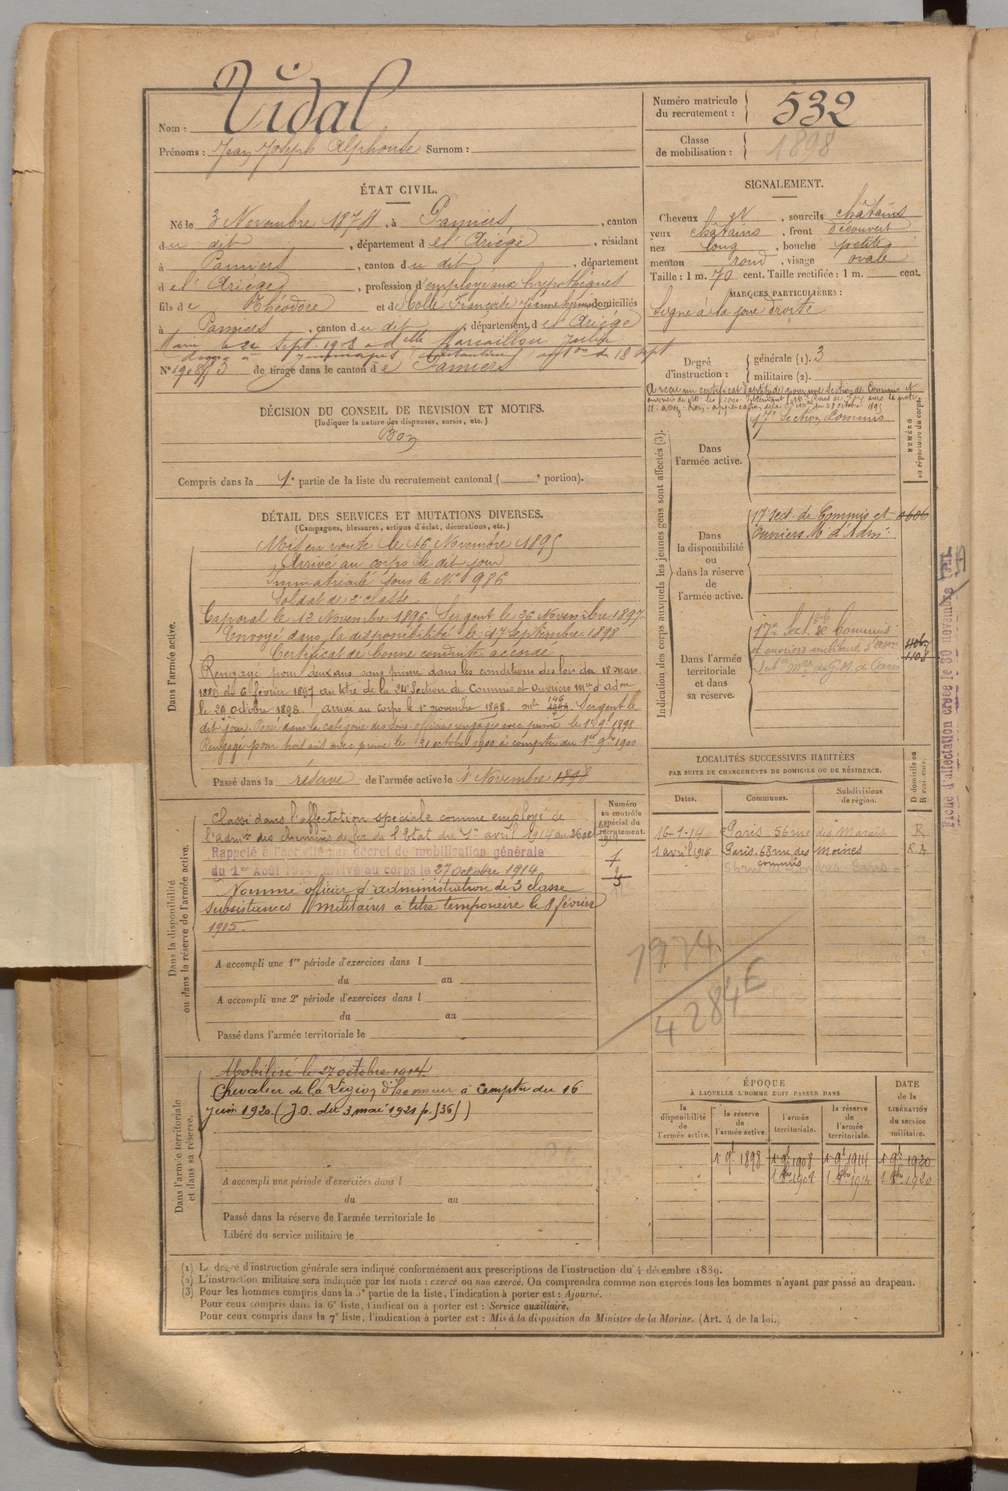 Nom : Vidal
Prénoms : Jean Joseph Alphonse Surnom :
Numéro matricule du recrutement : 532
Classe de mobilisation : 1898
ÉTAT CIVIL.
Né le 3 Novembre 1874, à Pamiers, canton
du dit, département de l'Ariège, résidant
à Pamiers, canton du dit, département
de l'Ariège, profession d'employé aux hypothèques
fils de Théodore et de Colle Françoise domiciliés
à Pamiers, canton du dit, département de l'Ariège
de tirage dans le canton de Pamiers
DÉCISION DU CONSEIL DE REVISION ET MOTIFS.
(Indiquer la nature des dispenses, sursis, etc.)
Bon
Compris dans la 1e partie de la liste du recrutement cantonal ( e portion).
SIGNALEMENT.
Cheveux et, sourcils châtains
yeux châtains, front découvert
nez long, bouche petite
menton rond, visage ovale
Taille : 1 m. 70 cent. Taille rectifiée : 1 m. cent.
MARQUES PARTICULIÈRES :
Signe à la joue droite
Degré d'instruction : générale (1). 3
militaire (2).
Indication des corps auxquels les jeunes gens sont affectés (3).
NUMÉRO au répertoire du corps.
Dans l'armée active.
17e Section Commis
Dans la disponibilité ou dans la réserve de l'armée active.
17 Sect. de Commis et
Ouvriers Mres d'Adm.
Dans l'armée territoriale et dans sa réserve.
17e Sect. de Commis
et ouvriers militaires d'adm
1108
DÉTAIL DES SERVICES ET MUTATIONS DIVERSES.
(Campagnes, blessures, actions d'éclat, décorations, etc.)
Dans l'armée active.
Mis en route le 16 Novembre 1895
Arrivé au corps le dit jour
Immatriculé sous le N° 986
Soldat de 2e classe.
Caporal le 12 Novembre 1896. Sergent le 26 Novembre 1897
Envoyé dans la disponibilité le 17 Septembre 1898
Certificat de bonne conduite accordé
Rengagé pour deux ans sans prime dans les conditions des lois du 18 mars
1889 du 6 février 1897 au titre de la 24e Section de Commis et Ouvriers Mres d'adon
le 29 octobre 1898. arrivé au corps le 1er novembre 1898. Sergent le
dit jour. Passé dans la catégorie des sous officiers rengagés avec prime le 1er 9bre 1898
Rengagé pour huit ans avec prime le 31 octobre 1900 à compter du 1er 9bre 1900
Passé dans la réserve de l'armée active le 1 Novembre 1898
Dans la disponibilité ou dans la réserve de l'armée active.
Numéro au contrôle spécial du recrutement.
Classé dans l'affectation spéciale comme employé de
l'admon des chemins de fer de l'État du 1er avril 1914 au 26 oct
1914
Rappelé à l'activité par décret de mobilisation générale
du 1er Août 1914. Arrivé au corps le 27 octobre 1914
Nommé officier d'administration de 3 classe
subsistances Militaires à titre temporaire le 8 février
1915.
A accompli une 1re période d'exercices dans l
du au
A accompli une 2e période d'exercices dans l
du au
Passé dans l'armée territoriale le
LOCALITÉS SUCCESSIVES HABITÉES
PAR SUITE DE CHANGEMENTS DE DOMICILE OU DE RÉSIDENCE.
Dates. Communes. Subdivisions de région. D domicile ou R résidence.
16-1-14 Paris 56 rue des Marais R
1 avril 1916 Paris. 68 rue des Moines
1974
4284E
Dans l'armée territoriale et dans sa réserve.
Mobilisé le 27 octobre 1914
Chevalier de la Légion d'Honneur à compter du 16
juin 1920 (J.O. du 3 mai 1921 p. 5361)
A accompli une période d'exercices dans l
du au
Passé dans la réserve de l'armée territoriale le
Libéré du service militaire le
ÉPOQUE
À LAQUELLE L'HOMME DOIT PASSER DANS
la disponibilité de l'armée active. la réserve de l'armée active. l'armée territoriale. la réserve de l'armée territoriale.
DATE de la LIBÉRATION du service militaire.
1 9bre 1898 1 9bre 1908 1 9bre 1914 1 9bre 1920
1908 1914 1920
(1) Le degré d'instruction générale sera indiqué conformément aux prescriptions de l'instruction du 4 décembre 1889.
(2) L'instruction militaire sera indiquée par les mots : exercé ou non exercé. On comprendra comme non exercés tous les hommes n'ayant pas passé au drapeau.
(3) Pour les hommes compris dans la 5e partie de la liste, l'indication à porter est : Ajourné.
Pour ceux compris dans la 6e liste, l'indication à porter est : Service auxiliaire.
Pour ceux compris dans la 7e liste, l'indication à porter est : Mis à la disposition du Ministre de la Marine. (Art. 4 de la loi.)